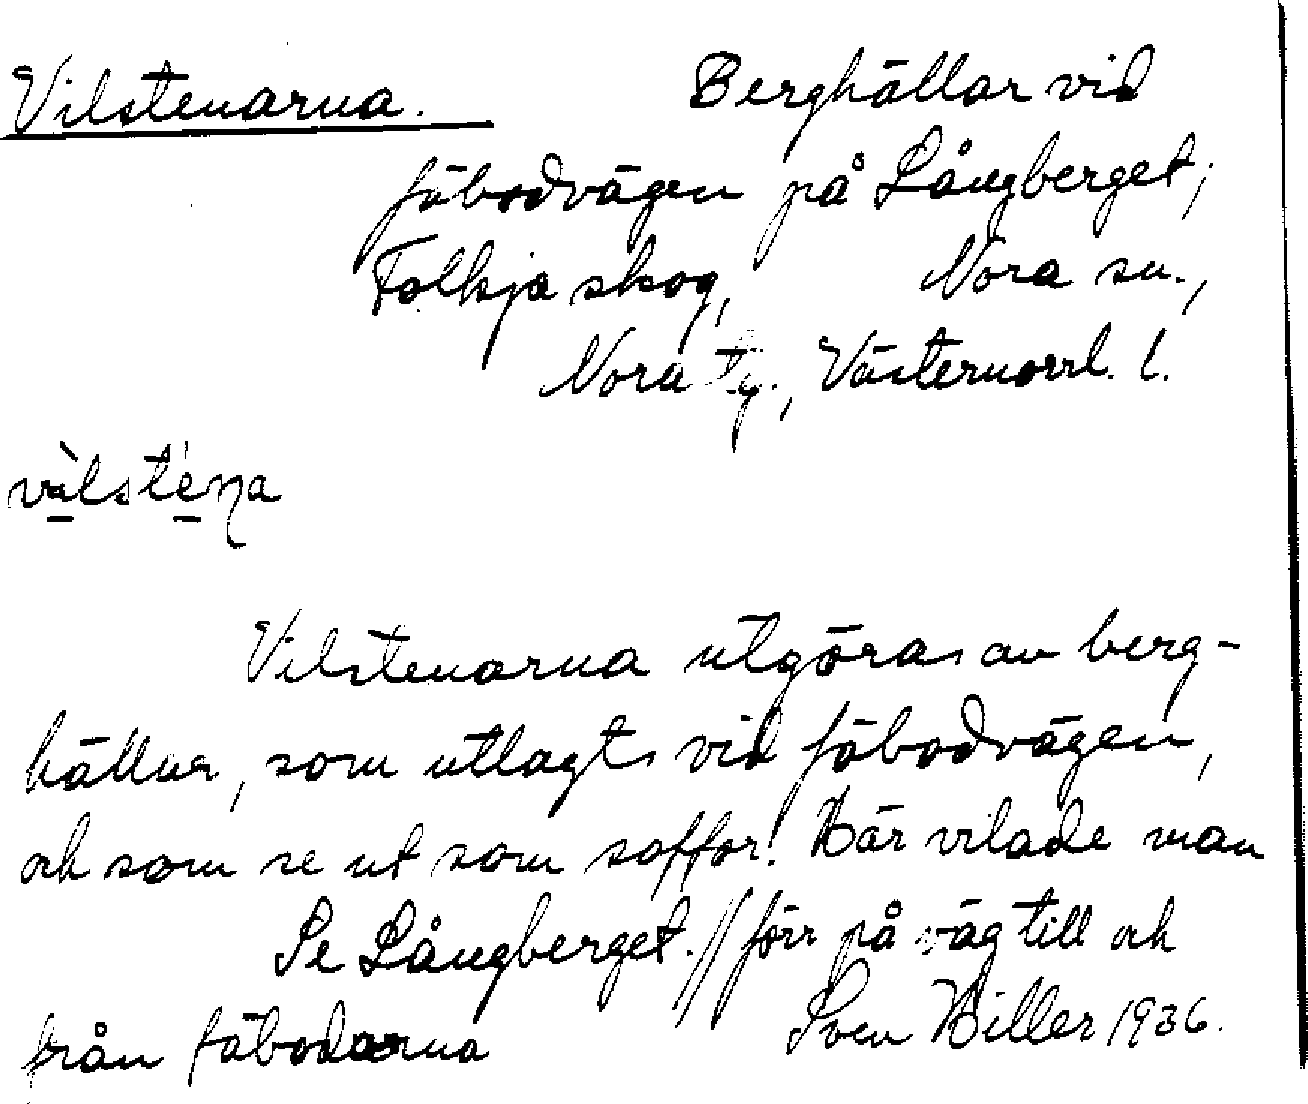 Vilstenarna. Berghällar vid
fäbodvägen på Långberget;
Folkja skog, Nora sn.,
Nora tg., Västernorrl. l.
vìlsténa
Vilstenarna utgöras av berg-
hällar, som utlagts vid fäbodvägen,
och som se ut som soffor! Här vilade man
Se Långberget. // förr på väg till och
från fäbodarna Sven Hiller 1936.